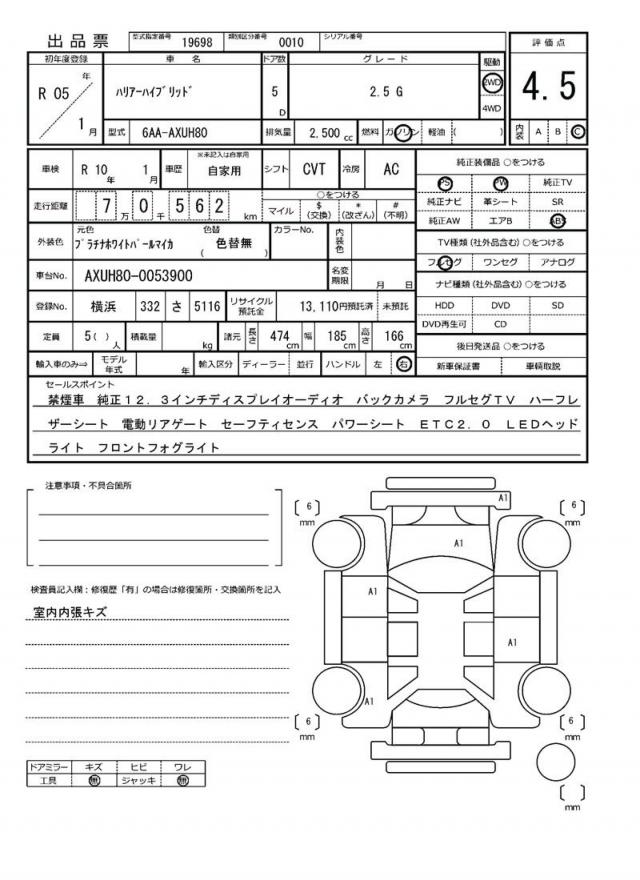 出品票 型式指定番号 19698 類別区分番号 0010 シリアル番号
評価点
4.5
内装 A B C
初年度登録 車名 ドア数 グレード 駆動
R 05 年 1 月
ハリアーハイブリッド 5 D 2.5 G 2WD 4WD
型式 6AA-AXUH80 排気量 2,500 cc 燃料 ガソリン 軽油 ( )
車検 R 10 年 1 月 車歴 ※未記入は自家用 自家用 シフト CVT 冷房 AC
走行距離 7 万 0 千 5 6 2 km
○をつける
マイル $ (交換) * (改ざん) # (不明)
外装色 元色 プラチナホワイトパールマイカ 色替 ( 色替無 ) カラーNo. 内装色
車台No. AXUH80-0053900 名変期限 月 日
登録No. 横浜 332 さ 5116 リサイクル預託金 13,110円預託済 未預託
定員 5( ) 人 積載量 kg 諸元 長さ 474 cm 幅 185 cm 高さ 166 cm
輸入車のみ⇒ モデル年式 年 輸入区分 ディーラー 並行 ハンドル 左 右
純正装備品 ○をつける
PS PW 純正TV
純正ナビ 革シート SR
純正AW エアB ABS
TV種類(社外品含む) ○をつける
フルセグ ワンセグ アナログ
ナビ種類(社外品含む) ○をつける
HDD DVD SD
DVD再生可 CD
後日発送品 ○をつける
新車保証書 車輌取説
セールスポイント
禁煙車 純正12.3インチディスプレイオーディオ バックカメラ フルセグTV ハーフレ
ザーシート 電動リアゲート セーフティセンス パワーシート ETC2.0 LEDヘッド
ライト フロントフォグライト
注意事項・不具合箇所
検査員記入欄：修復歴「有」の場合は修復箇所・交換箇所を記入
室内内張キズ
ドアミラー キズ ヒビ ワレ
工具 無 ジャッキ 無
A1
[ 6 ] mm
[ 6 ] mm
A1
A1
A1
A1
[ 6 ] mm
[ 6 ] mm
[ ] mm